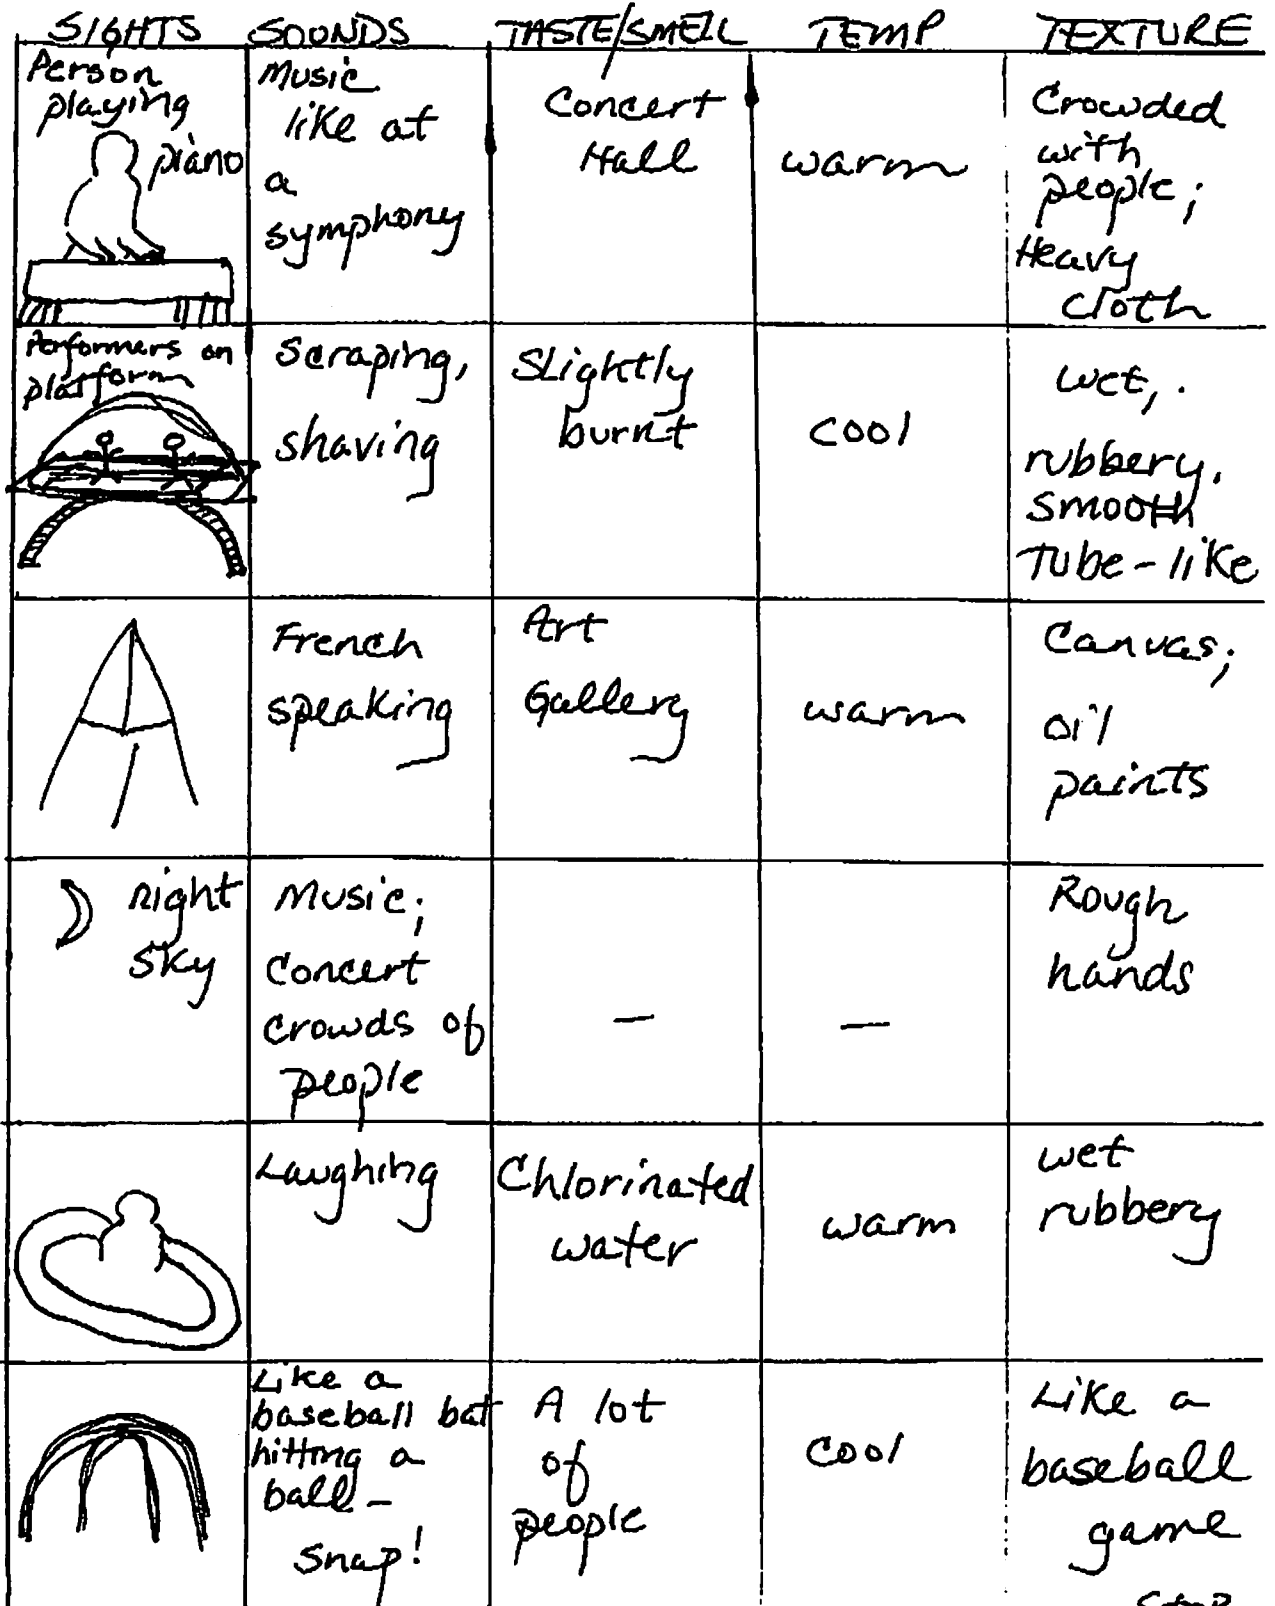 SIGHTS SOUNDS TASTE/SMELL TEMP TEXTURE
Person
playing
piano
Music
like at
a
symphony
Concert
Hall
warm
Crowded
with
people;
Heavy
cloth
Performers on
platform
Scraping,
shaving
Slightly
burnt
cool
wet,
rubbery.
smooth
Tube-like
French
speaking
Art
Gallery
warm
Canvas;
oil
paints
night
sky
Music;
concert
crowds of
people
—
—
Rough
hands
Laughing
Chlorinated
water
warm
wet
rubbery
Like a
baseball bat
hitting a
ball-
snap!
A lot
of
people
cool
Like a
baseball
game